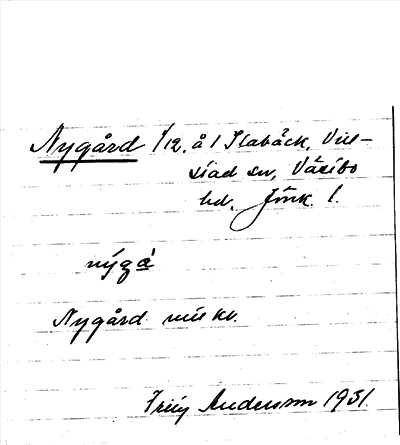 Nygård 1/12 å 1 Slabäck, Vill-
stad sn, Västbo
hd. Jönk. l.
nýgå̲
Nygård
Andersson 1931.